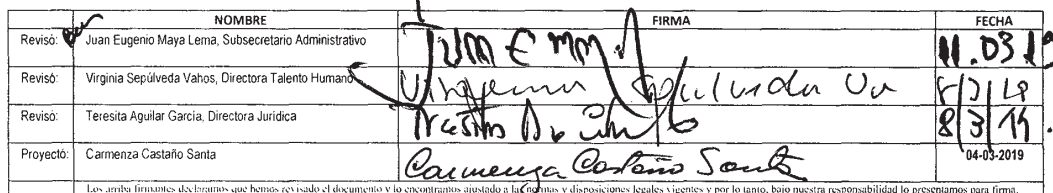 NOMBRE FIRMA FECHA
Revisó: Juan Eugenio Maya Lema, Subsecretario Administrativo 11.03.19
Revisó: Virginia Sepúlveda Vahos, Directora Talento Humano Virginia Sepulveda Va 8/3/19
Revisó: Teresita Aguilar García, Directora Jurídica 8/3/19.
Proyectó: Carmenza Castaño Santa Carmenza Castaño Santa 04-03-2019
Los arriba firmantes declaramos que hemos revisado el documento y lo encontramos ajustado a las normas y disposiciones legales vigentes y por lo tanto, bajo nuestra responsabilidad lo presentamos para firma.